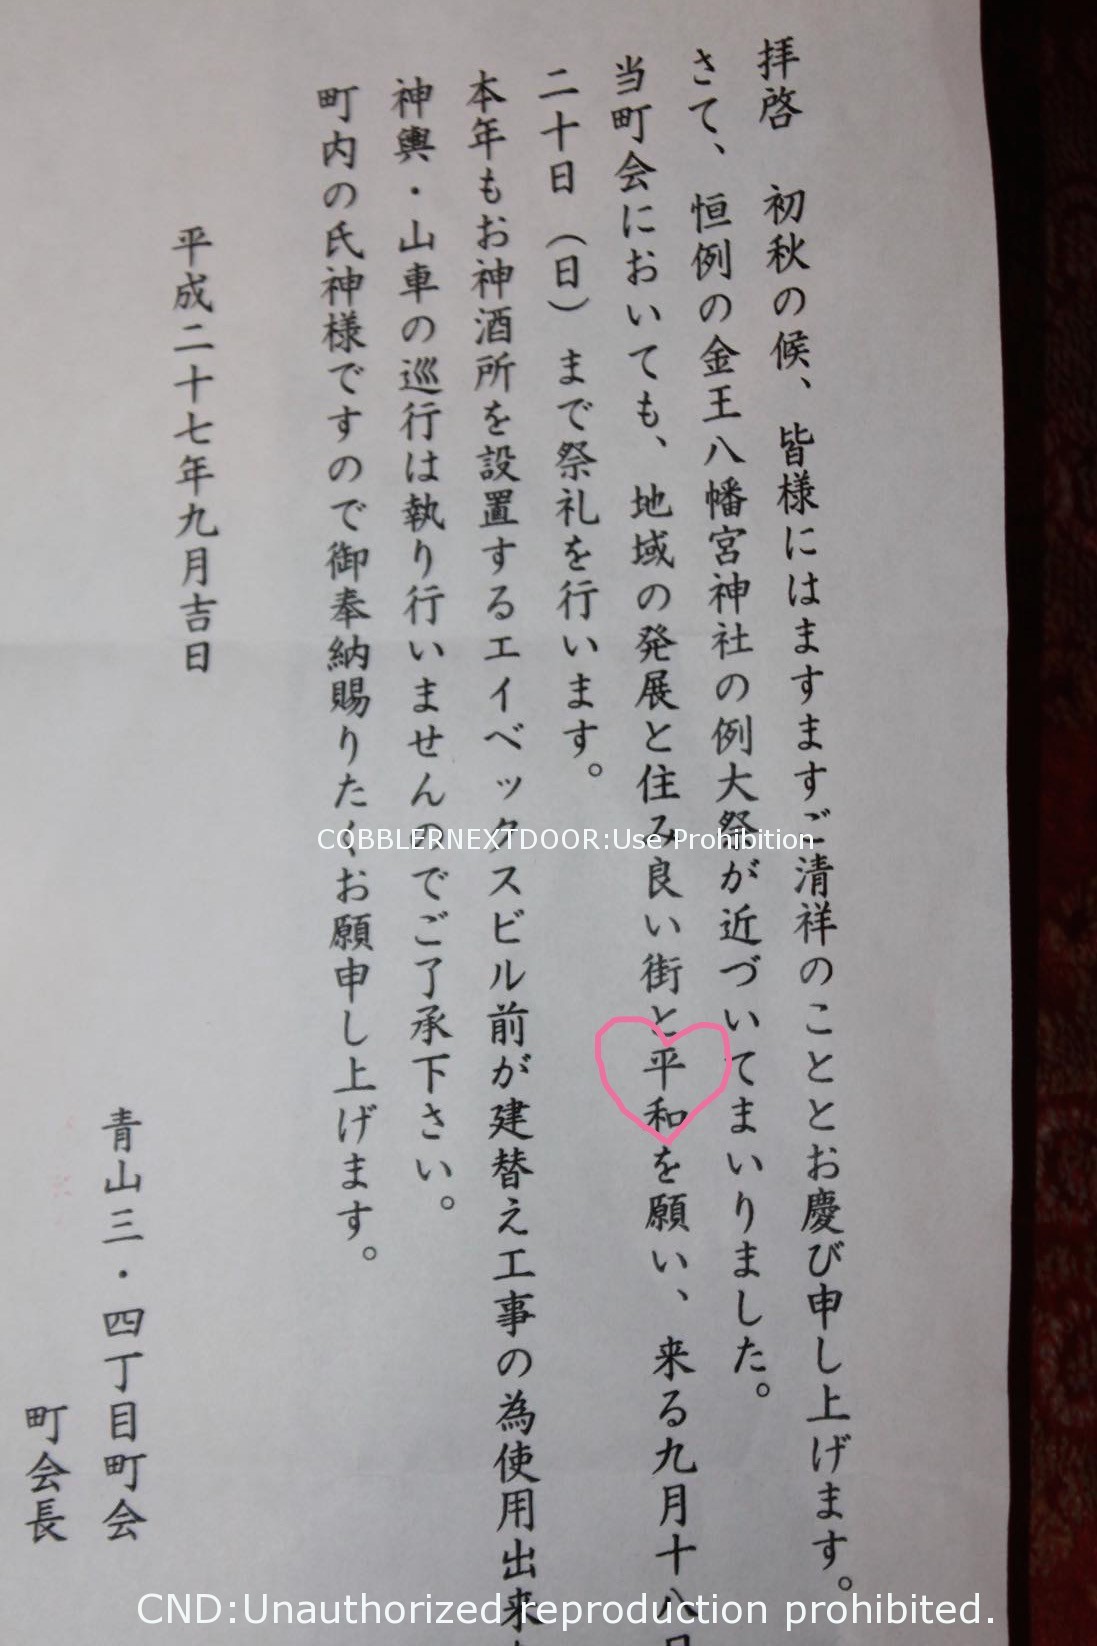 拝啓　初秋の候、皆様にはますますご清祥のこととお慶び申し上げます。
さて、恒例の金王八幡宮神社の例大祭が近づいてまいりました。
当町会においても、地域の発展と住み良い街と平和を願い、来る九月十八日
二十日（日）まで祭礼を行います。
本年もお神酒所を設置するエイベックスビル前が建替え工事の為使用出来
神輿・山車の巡行は執り行いませんのでご了承下さい。
町内の氏神様ですので御奉納賜りたくお願申し上げます。
平成二十七年九月吉日
青山三・四丁目町会
町会長
COBBLERNEXTDOOR:Use Prohibition
CND:Unauthorized reproduction prohibited.